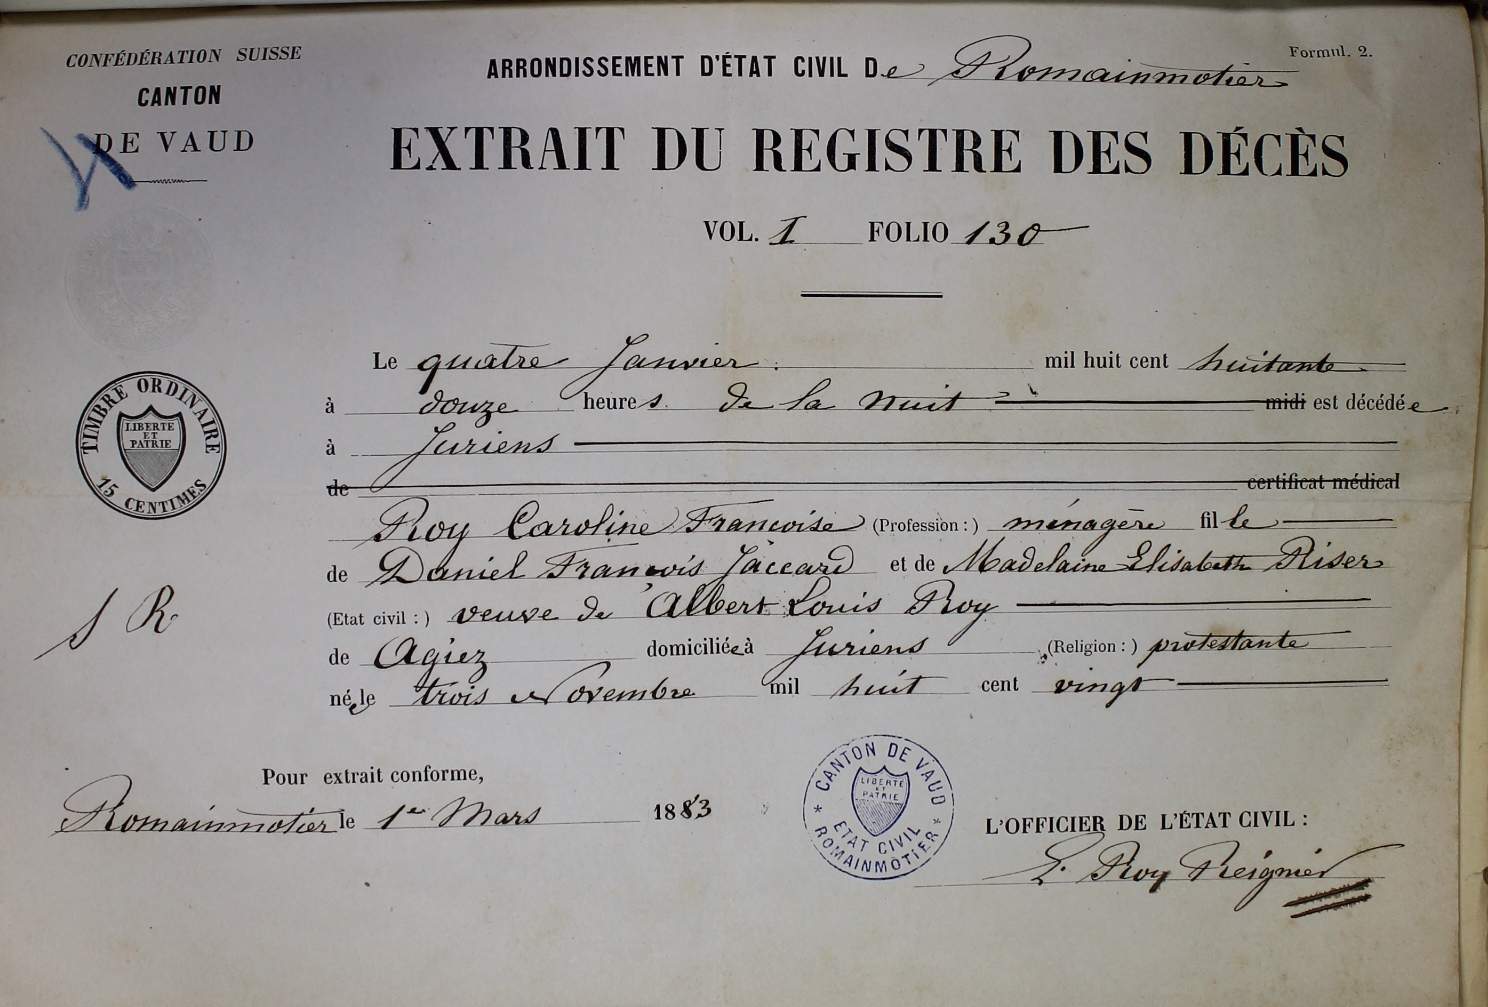 CONFÉDÉRATION SUISSE
CANTON
DE VAUD
Formul. 2.
ARRONDISSEMENT D'ÉTAT CIVIL De Romainmotier
EXTRAIT DU REGISTRE DES DÉCÈS
VOL. I FOLIO 130
TIMBRE ORDINAIRE
LIBERTE
ET
PATRIE
15 CENTIMES
Le quatre Janvier mil huit cent huitante
à douze heures de la nuit midi est décédée
à Juriens
de certificat médical
Roy Caroline Francoise (Profession : ) ménagère fille
de Daniel François Jaccard et de Madelaine Elisabeth Riser
(Etat civil : ) veuve de Albert Louis Roy
de Agiez domiciliée à Juriens (Religion : ) protestante
née le trois Novembre mil huit cent vingt
S R
Pour extrait conforme,
Romainmotier le 1er Mars 1883
CANTON DE VAUD
LIBERTE
ET
PATRIE
ETAT CIVIL
ROMAINMÔTIER
L'OFFICIER DE L'ÉTAT CIVIL :
L. Roy Reignier